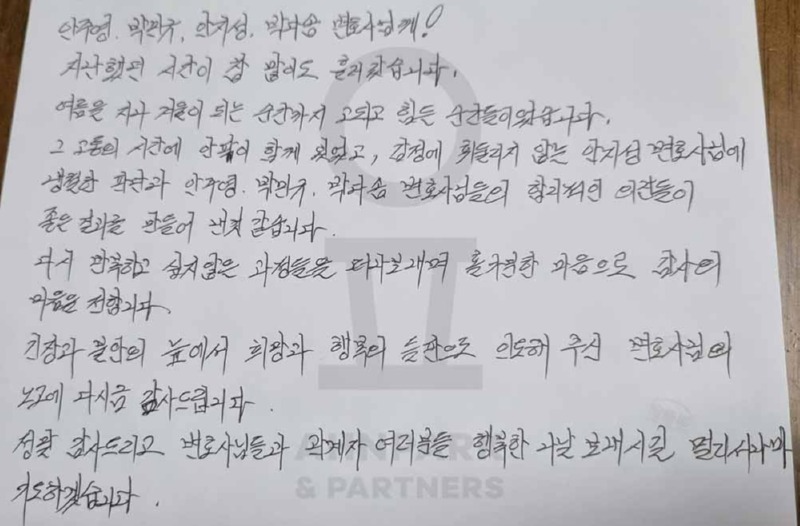 안주영, 박민규, 안지성, 박다솜 변호사님께!
지난했던 시간이 참 많이도 흘러갔습니다.
여름을 지나 겨울이 되는 순간까지 고되고 힘든 순간들이었습니다.
그 고통의 시간에 안팍이 함께 있었고, 감정에 휘둘리지 않는 안지성 변호사님에
냉철한 판단과 안주영, 박민규, 박다솜 변호사님들의 합리적인 의견들이
좋은 결과를 만들어 낸것 같습니다.
다시 반복하고 싶지않은 과정들을 떠나보내며 홀가분한 마음으로 감사의
마음을 전합니다.
긴장과 불안의 늪에서 희망과 행복의 들판으로 인도해 주신 변호사님의
노고에 다시금 감사드립니다.
정말 감사드리고 변호사님들과 관계자 여러분들 행복한 나날 보내시길 멀리서나마
기도하겠습니다.
& PARTNERS